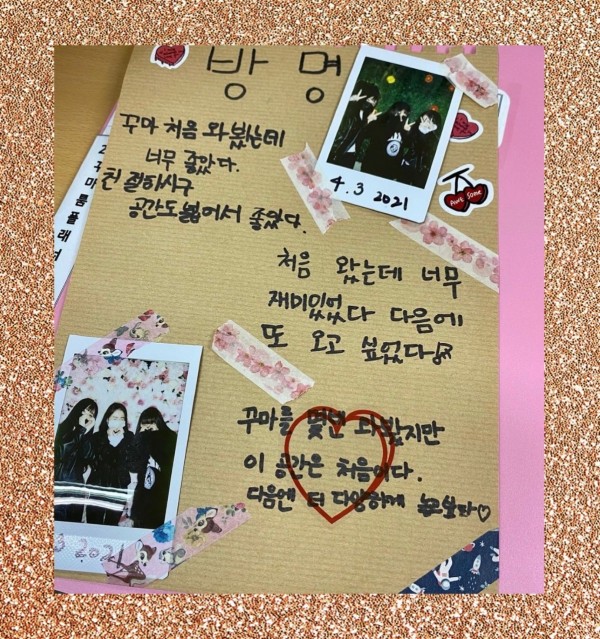 방 명
꾸마 처음 와 봤는데
너무 좋았다.
친절하시구
공간도 넓어서 좋았다.
4. 3 2021
Awesome
처음 왔는데 너무
재미있었다 다음에
또 오고 싶었다
꾸마를 몇번 와봤지만
이 공간은 처음이다.
다음엔 더 다양하게 놀고싶다♡
3 2021
2
꾸
마
룸
플
래
너